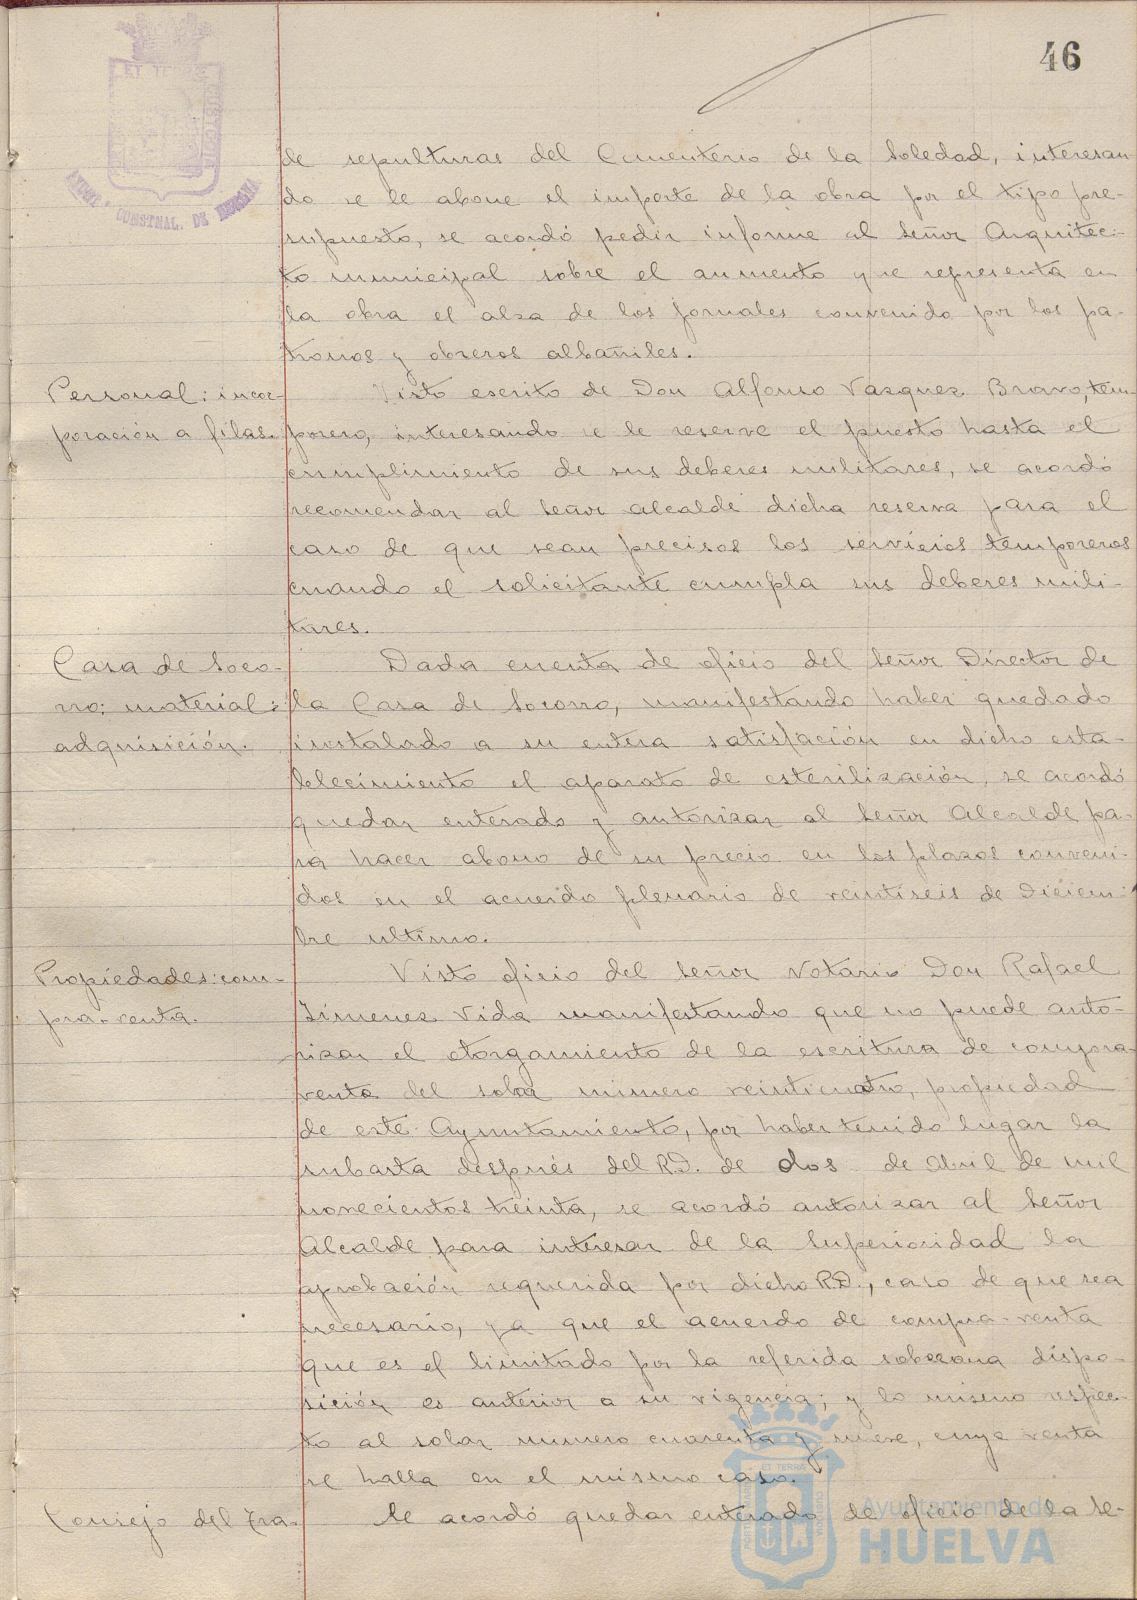 46
de sepulturas del Cementerio de la Soledad, interesan-
do se le abone el importe de la obra por el tipo pre-
supuesto, se acordó pedir informe al Señor Arquitec-
to municipal sobre el aumento que representa en
la obra el alza de los jornales convenido por los pa-
tronos y obreros albañiles.
Personal: incor-
poración a filas.
Visto escrito de Don Alfonso Vazquez Bravo, tem-
porero, interesando se le reserve el puesto hasta el
cumplimiento de sus deberes militares, se acordó
recomendar al Señor Alcalde dicha reserva para el
caso de que sean precisos los servicios temporeros
cuando el solicitante cumpla sus deberes mili-
tares.
Casa de Soco-
rro: material:
adquisición.
Dada cuenta de oficio del Señor Director de
la Casa de Socorro, manifestando haber quedado
instalado a su entera satisfacción en dicho esta-
blecimiento el aparato de esterilización, se acordó
quedar enterado y autorizar al Señor Alcalde pa-
ra hacer abono de su precio en los plazos conveni-
dos en el acuerdo plenario de veintiseis de Diciem-
bre ultimo.
Propiedades: com-
pra-venta.
Visto oficio del Señor Notario Don Rafael
Jimenez Vida manifestando que no puede auto-
rizar el otorgamiento de la escritura de compra-
venta del solar número veinticuatro, propiedad
de este Ayuntamiento, por haber tenido lugar la
subasta después del R.D. de dos de Abril de mil
novecientos treinta, se acordó autorizar al Señor
Alcalde para interesar de la Superioridad la
aprobación requerida por dicho R.D., caso de que sea
necesario, ya que el acuerdo de compra-venta
que es el limitado por la referida soberana dispo-
sición es anterior a su vigencia; y lo mismo respec-
to al solar numero cuarenta y nueve, cuya venta
se halla en el mismo caso.
Consejo del Tra-
Se acordó quedar enterado de oficio de la Se-
Ayuntamiento de
HUELVA